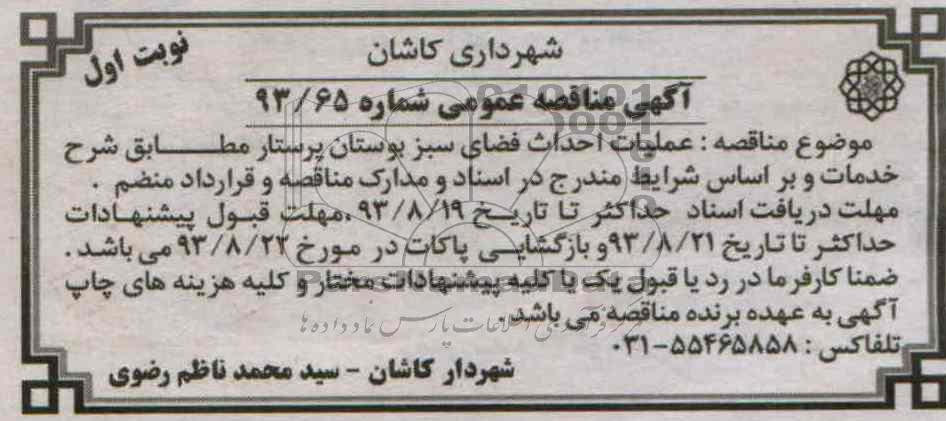 شهرداری کاشان
نوبت اول
آگهی مناقصه عمومی شماره ۹۳/۶۵
موضوع مناقصه : عملیات احداث فضای سبز بوستان پرستار مطابق شرح
خدمات و بر اساس شرایط مندرج در اسناد و مدارک مناقصه و قرارداد منضم .
مهلت دریافت اسناد حداکثر تا تاریخ ۹۳/۸/۱۹ ،مهلت قبول پیشنهادات
حداکثر تا تاریخ ۹۳/۸/۲۱و بازگشایی پاکات در مورخ ۹۳/۸/۲۲ می باشد .
ضمنا کارفرما در رد یا قبول یک یا کلیه پیشنهادات مختار و کلیه هزینه های چاپ
آگهی به عهده برنده مناقصه می باشد .
تلفاکس : ۵۵۴۶۵۸۵۸-۰۳۱
شهردار کاشان - سید محمد ناظم رضوی